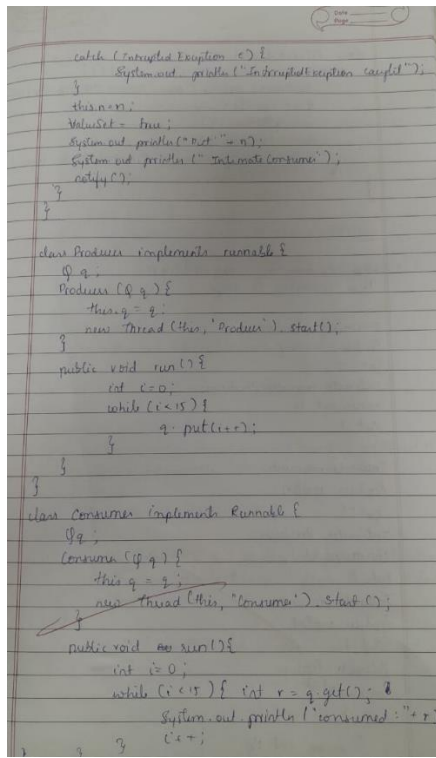 Date
Page
catch (Intrupted Exception e) {
System.out println ("InterruptedException caught");
}
this.n=n;
ValueSet = true;
System.out println ("Put: " - n);
System.out println (" Intimate Consumer");
notify();
}
}
class Producer implements runnable {
Q q;
Producer (Q q) {
this.q = q;
new Thread (this, "Producer"). start();
}
public void run () {
int i=0;
while (i<15) {
q. put(i++);
}
}
}
class Consumer implements Runnable {
Q q;
Consumer (Q q) {
this q = q;
new Thread (this, "Consumer"). start ();
}
public void run () {
int i=0;
while (i<15) { int r = q.get();
System.out.println ("consumed: " + r
i++;
} } }